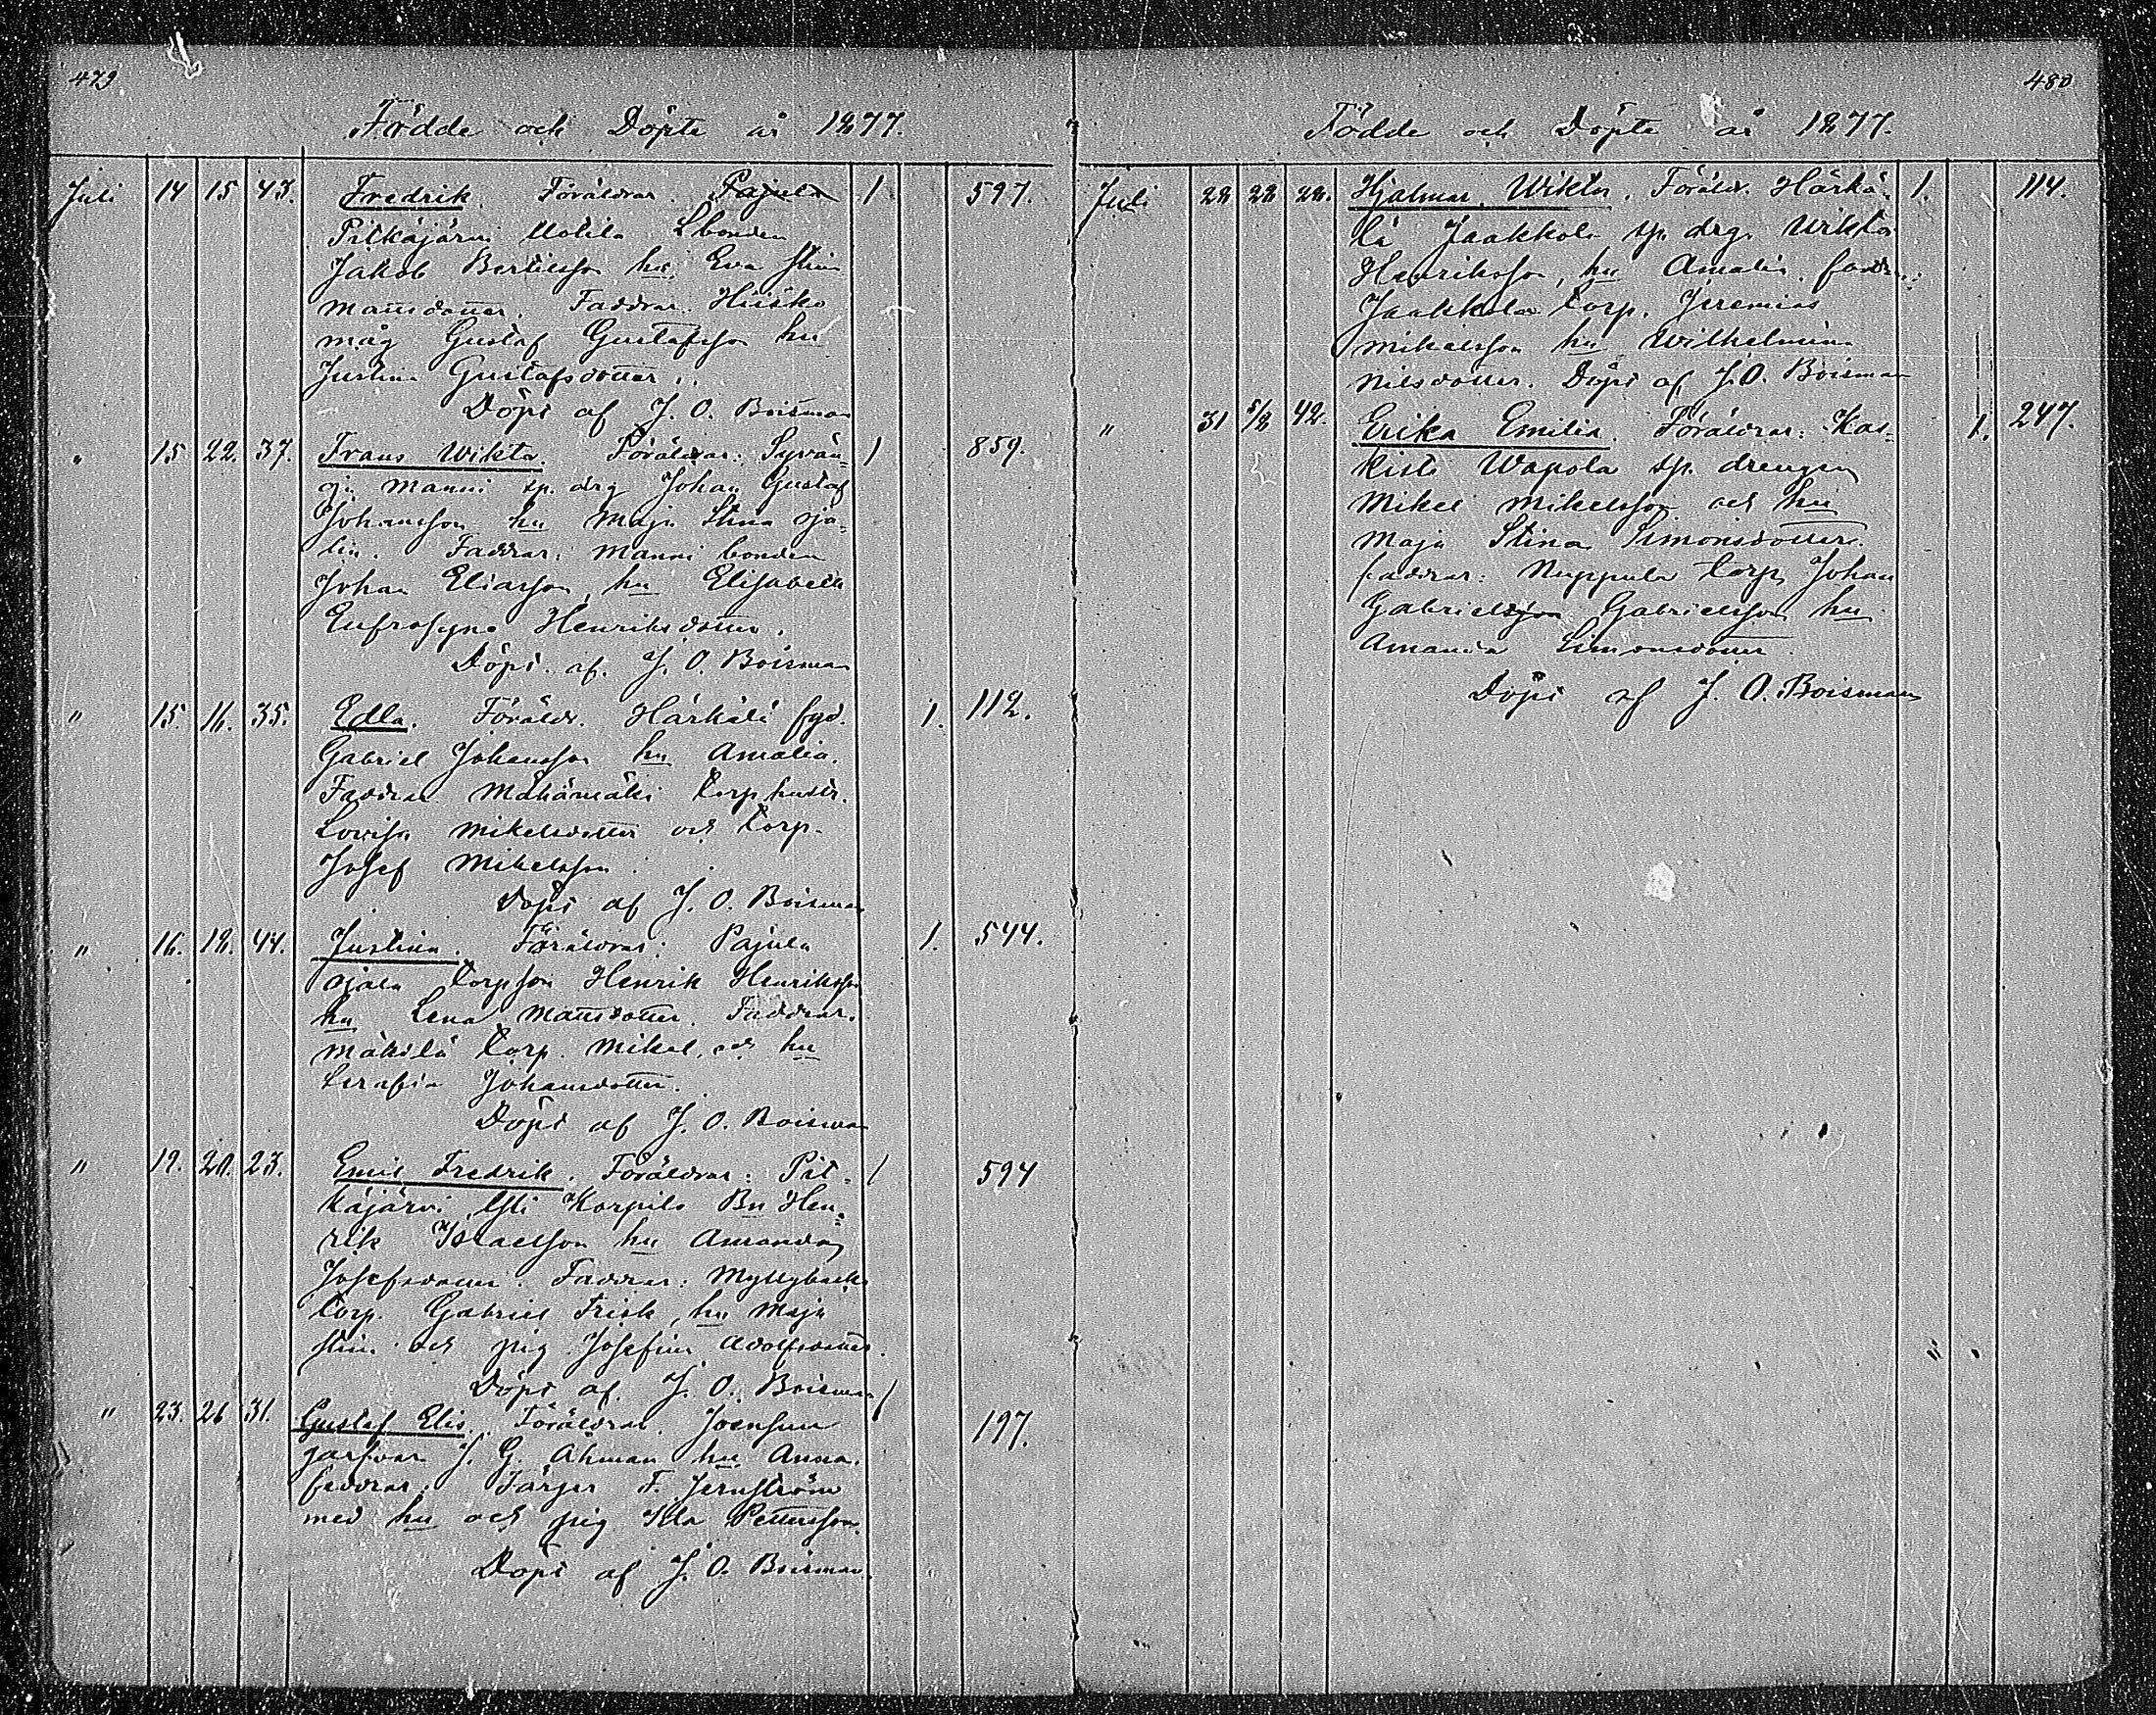 479
Födde och Döpte år 1877.
Juli 14 15 43. Fredrik. Föräldrar. Pajula 1 597.
Pitkäjärvi Uotila Lbonden
Jakob Bertilsson hu Eva Stin
Mattsdotter. Faddrar. Hiisko
måg Gustaf Gustafsson hu
Justina Gustafsdotter.
Döpt af J. O. Boisman
" 15 22. 37. Frans Wiktor. Föräldrar: Syvän- 1 859.
oja Manni sp. drg Johan Gustaf
Johansson hu Maja Stina Sjö-
lin. Faddrar: Manni bonden
Johan Eliasson, hu Elisabeth
Eufrosyne Henriksdotter.
Döpt af J. O. Boisman
" 15. 16. 35. Edla. Föräldr. Härkälä 1. 112.
Gabriel Johansson hu Amalia.
Faddrar Mäkämäki torp hustr.
Lovisa Mikelsdotter och torp.
Josef Mikelsson.
Döpt af J. O. Boisman
" 16. 18. 44. Justina. Föräldrar: Pajula 1. 544.
Ojala torpson Henrik Henriksson
hu Lena Mattsdotter. Faddrar.
Mäkilä torp. Mikel, och hu
Serafia Johansdotter.
Döpt af J. O. Boisman
" 19. 20. 23. Emil Fredrik. Föräldrar: Pit- 1 594
käjärvi Korpilo Bn Hen-
rik Israelsson hu Amanda
Josefsdotter. Faddrar: Myllyback
torp. Gabriel Frisk, hu Maja
Stina och pig. Josefina Adolfsdotter.
Döpt af. J. O. Boisman
" 23. 26 31. Gustaf Elis. Föräldrar. Joensuu 1 197.
garfvar J. G. Åhman hu Anna.
faddrar: Färger F. Jernström
med hu och pig Ida Pettersson.
Döpt af J. O. Boisman.
480
Födde och Döpte år 1877.
Juli 28 28 28. Hjalmar Wiktor. Föräldr. Härkä- 1. 114.
lä Jaakkola sp. drg. Wiktor
Henriksson, hu Amalia. faddr.:
Jaakkola torp. Jeremias
Mikelsson hu Wilhelmina
Nilsdotter. Döpt af J. O. Boisman
" 31 5/8 42. Erika Emilia. Föräldrar: Kas- 1. 247.
kisto Wapola sp. drengen
Mikel Mikelsson och hu
Maja Stina Simonsdotter.
faddrar: Nuppula torp, Johan
Gabrielsson Gabrielsson hu
Amanda Simonsdotter.
Döpt af J. O. Boisman